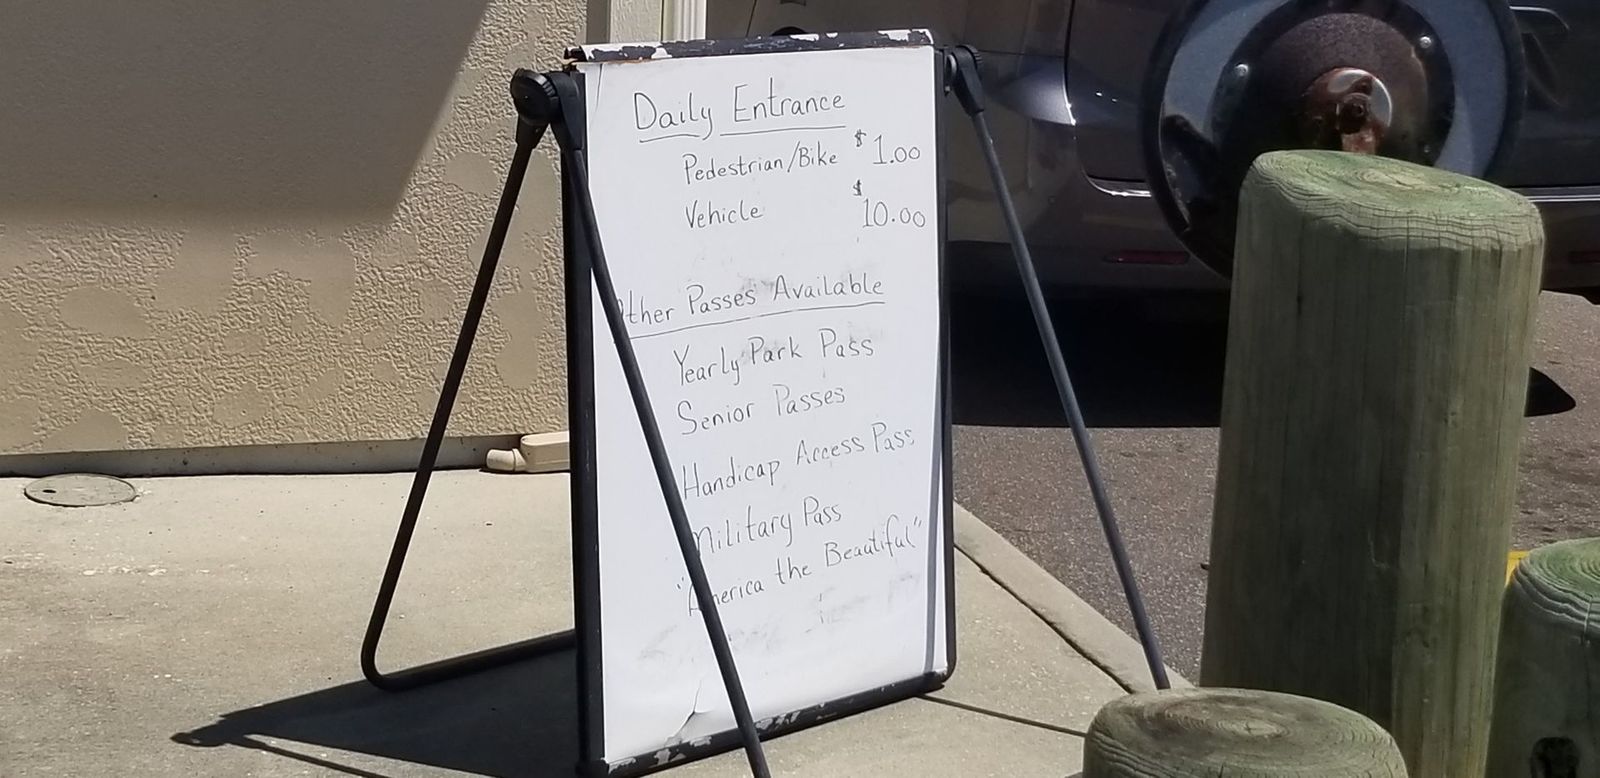 Daily Entrance
Pedestrian/Bike $1.00
Vehicle $10.00
Other Passes Available
Yearly Park Pass
Senior Passes
Handicap Access Pass
Military Pass
"America the Beautiful"